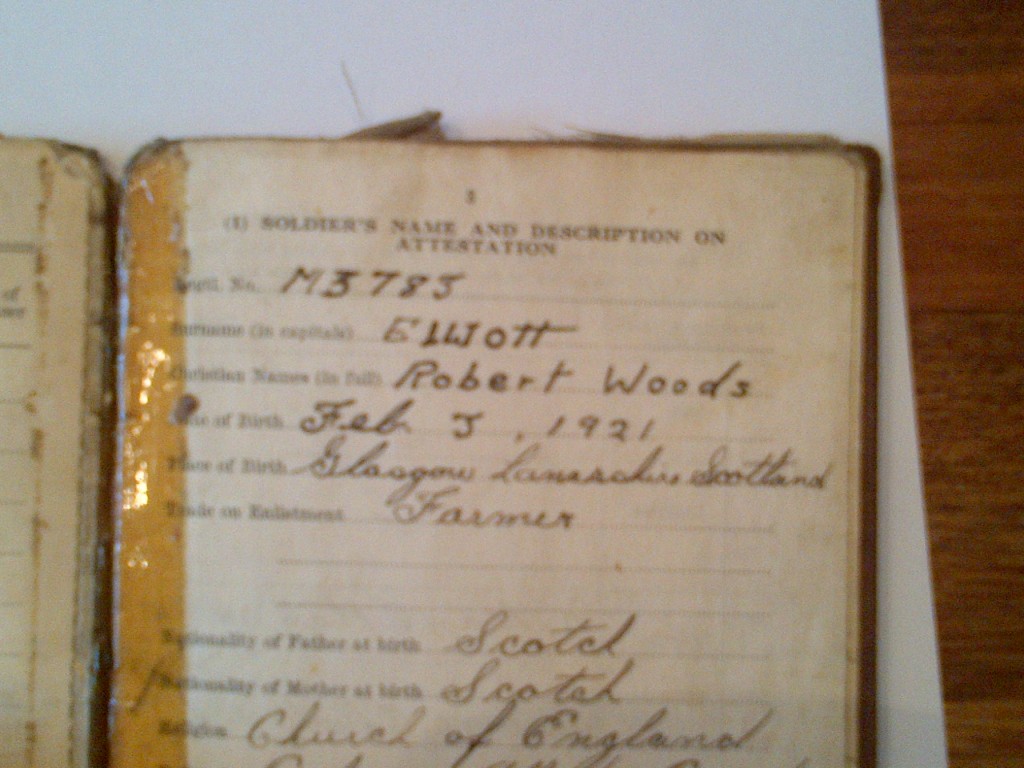 1
(1) SOLDIER'S NAME AND DESCRIPTION ON
ATTESTATION
Regtl. No. M3783
Surname (in capitals) Elliott
Christian Names (in full) Robert Woods
Date of Birth Feb 3, 1921
Place of Birth Glasgow Lanarkshire Scotland
Trade on Enlistment Farmer
Nationality of Father at birth Scotch
Nationality of Mother at birth Scotch
Religion Church of England
of